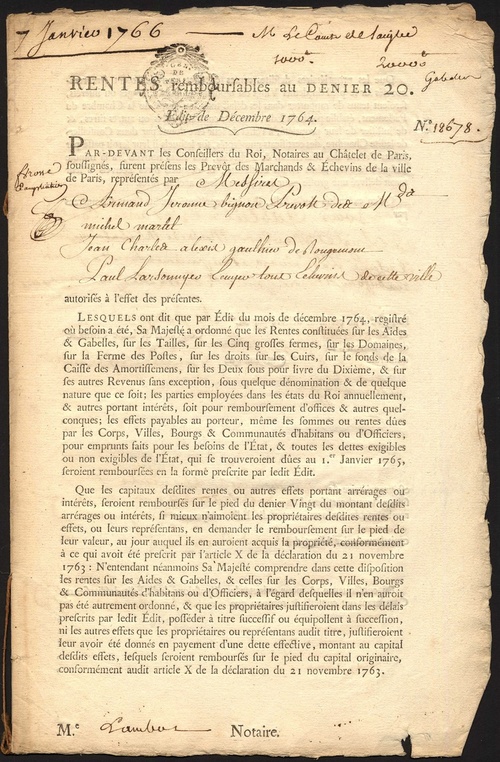 7 Janvier 1766 — M. Le Comte de
1000# 20000#
Gabelles
RENTES remboursables au DENIER 20.
Edit de Décembre 1764.
N.° 18678.
PAR-DEVANT les Conseillers du Roi, Notaires au Châtelet de Paris,
soussignés, furent présens les Prevôt des Marchands & Échevins de la ville
de Paris, représentés par Messires
Armand Jerome bignon Prevost des M.ds
michel martel
Jean Charles alexis gauthier de Rougemont
Paul Larsonnyer tous Echevins de cette ville
autorisés à l'effet des présentes.
LESQUELS ont dit que par Édit du mois de décembre 1764, registré
où besoin a été, Sa Majesté a ordonné que les Rentes constituées sur les Aides
& Gabelles, sur les Tailles, sur les Cinq grosses fermes, sur les Domaines,
sur la Ferme des Postes, sur les droits sur les Cuirs, sur le fonds de la
Caisse des Amortissemens, sur les Deux sous pour livre du Dixième, & sur
ses autres Revenus sans exception, sous quelque dénomination & de quelque
nature que ce soit; les parties employées dans les états du Roi annuellement,
& autres portant intérêts, soit pour remboursement d'offices & autres quel-
conques; les effets payables au porteur, même les sommes ou rentes dûes
par les Corps, Villes, Bourgs & Communautés d'habitans ou d'Officiers,
pour emprunts faits pour les besoins de l'État, & toutes les dettes exigibles
ou non exigibles de l'État, qui se trouveroient dûes au 1.er Janvier 1765,
seroient remboursées en la forme prescrite par ledit Édit.
Que les capitaux desdites rentes ou autres effets portant arrérages ou
intérêts, seroient remboursés sur le pied du denier Vingt du montant desdits
arrérages ou intérêts, si mieux n'aimoient les propriétaires desdites rentes ou
effets, ou leurs représentans, en demander le remboursement sur le pied de
leur valeur, au jour auquel ils en auroient acquis la propriété, conformément
à ce qui avoit été prescrit par l'article X de la déclaration du 21 novembre
1763 : N'entendant néanmoins Sa Majesté comprendre dans cette disposition
les rentes sur les Aides & Gabelles, & celles sur les Corps, Villes, Bourgs
& Communautés d'habitans ou d'Officiers, à l'égard desquelles il n'en auroit
pas été autrement ordonné, & que les propriétaires justifieroient dans les délais
prescrits par ledit Édit, posséder à titre successif ou équipollent à succession,
ni les autres effets que les propriétaires ou représentans audit titre, justifieroient
leur avoir été donnés en payement d'une dette effective, montant au capital
desdits effets, lesquels seroient remboursés sur le pied du capital originaire,
conformément audit article X de la déclaration du 21 novembre 1763.
M.e Lambot Notaire.